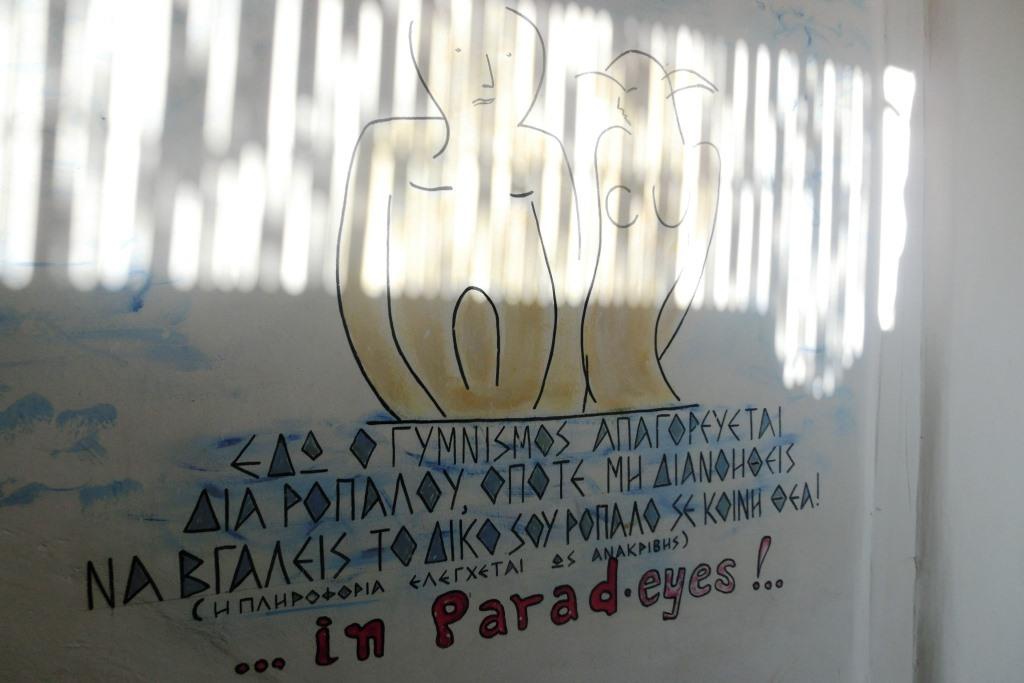 ΕΔΩ Ο ΓΥΜΝΙΣΜΟΣ ΑΠΑΓΟΡΕΥΕΤΑΙ
ΔΙΑ ΡΟΠΑΛΟΥ, ΟΠΟΤΕ ΜΗ ΔΙΑΝΟΗΘΕΙΣ
ΝΑ ΒΓΑΛΕΙΣ ΤΟ ΔΙΚΟ ΣΟΥ ΡΟΠΑΛΟ ΣΕ ΚΟΙΝΗ ΘΕΑ!
(Η ΠΛΗΡΟΦΟΡΙΑ ΕΛΕΓΧΕΤΑΙ ΩΣ ΑΝΑΚΡΙΒΗΣ)
... in Parad·eyes!..